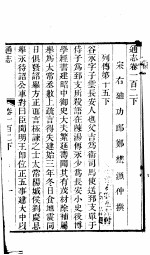 通志卷一百二下
宋右迪功郎鄭樵漁仲撰
列傳第十五下
谷永字子雲長安人也父吉爲衛司馬使送郅支單于
侍子爲郅支所殺語在陳湯傳永少爲長安小史後博
學經書建昭中御史大夫繁延壽聞其有茂材除補屬
舉爲太常丞數上疏言得失建始三年冬日食地震同
日俱發詔舉方正直言極諫之士太常陽城侯劉慶忌
舉永待詔公車對曰臣聞明王即位正五事建大中以
通志 卷一百二下